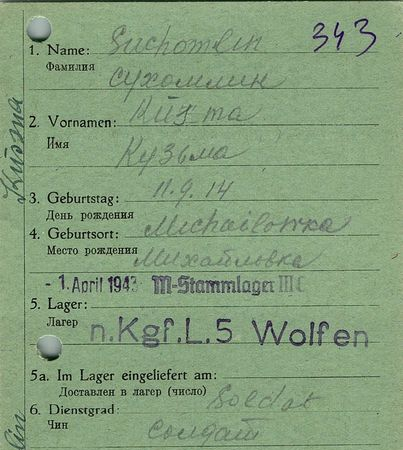 343
1. Name: Suchomlin
Фамилия
Сухомлин
2. Vornamen:
Имя
Кузьма
3. Geburtstag: 11.9.14
День рождения
4. Geburtsort: Michailowka
Место рождения Михайловка
- 1. April 1943 M-Stammlager III C
5. Lager:
Лагер
n.Kgf.L.5 Wolfen
5a. Im Lager eingeliefert am:
Доставлен в лагер (число)
6. Dienstgrad: Soldat
Чин солдат